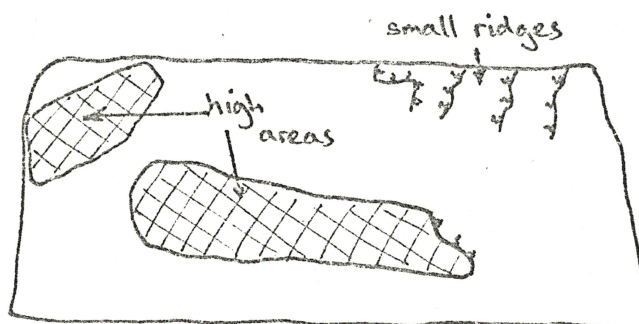 small ridges
high
areas